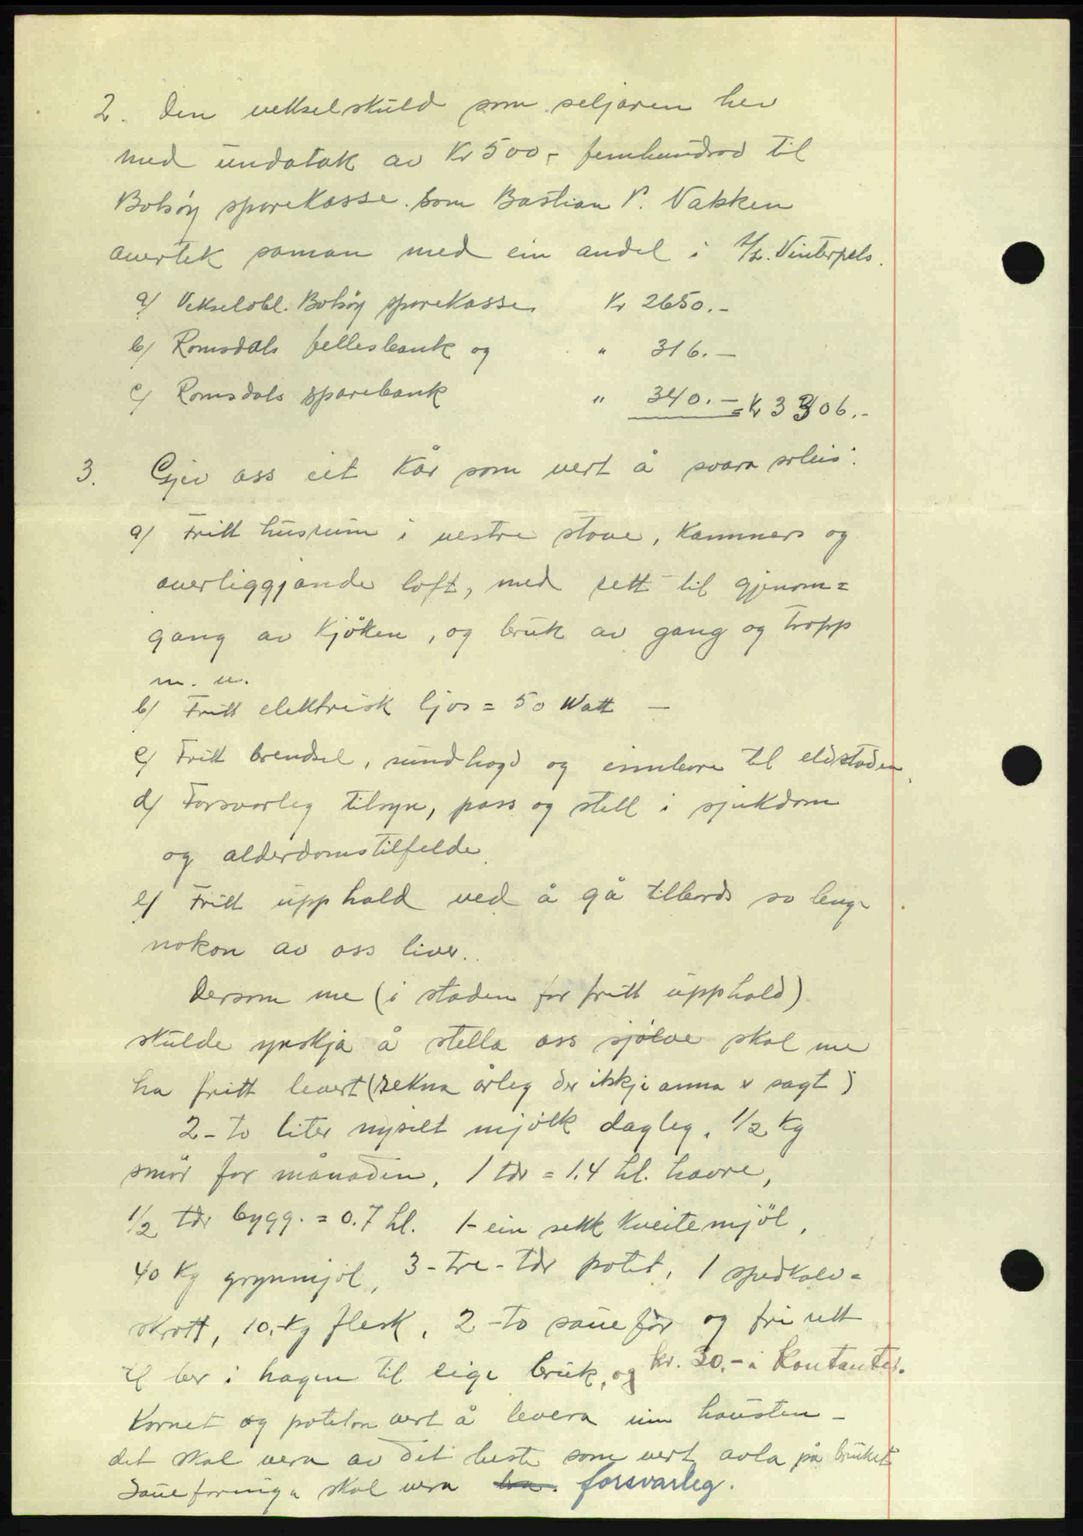 2. Den vekselskuld som seljaren hev
med undatak av Kr 500,- femhundrad til
Bolsøy sparekasse som Bastian P. Nakken
overtek saman med ein andel i A/L. Vinterpels.
a/ Vekselobl. Bolsøy sparekasse Kr 2650.-
b/ Romsdals fellesbank og " 316.-
c/ Romsdals sparebank " 340.- = Kr 3306.-
3. Gjev oss eit kår som vert å svara soleis:
a/ Fritt husrum i vestre stove, kammers og
overliggjande loft, med rett til gjenom=
gang av kjøken, og bruk av gang og tropp
m. v.
b/ Fritt elektrisk ljos = 50 Watt -
c/ Fritt brendsel, sundhogd og innbore til eldstaden.
d/ Forsvarleg tilsyn, pass og stell i sjukdom
og alderdomstilfelde.
e/ Fritt upphald ved å gå tilbords so lenge
nokon av oss liver.
Dersom me (i staden for fritt upphald)
skulde ynskja å stella oss sjølve skal me
ha fritt levert (rekna årleg der ikkje anna er sagt)
2-to liter nysilt mjølk dagleg, 1/2 kg
smør for månaden, 1 tdr = 1.4 hl. havre,
1/2 tdr bygg. = 0.7 hl. 1-ein sekk kveitemjøl,
40 kg grynmjøl, 3-tre-tdr potet, 1 spedkalv=
skrott, 10.-kg flesk, 2-to sauefor og fri rett
til ber i hagen til eige bruk, og kr. 30.- i kontanter.
Kornet og poteton vert å levera um hausten -
det skal vera av det beste som vert avla på bruket
Saueforinga skal vera forsvarleg.